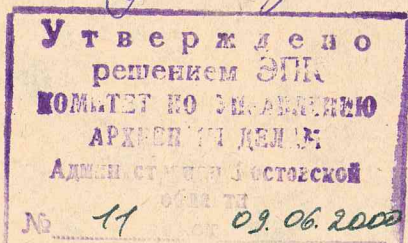 Утверждено
решением ЭПК
КОМИТЕТ ПО УПРАВЛЕНИЮ
АРХИВНЫМ ДЕЛОМ
Администрации Ростовской
области
№ 11 от 09.06.2000